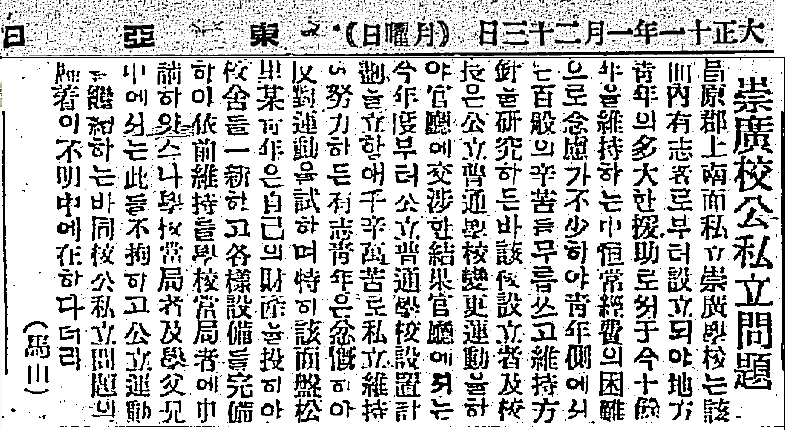 大正十一年一月二十三日 (月曜日) 東亞日
崇廣校公私立問題
昌原郡上南面私立崇廣學校는該
面內有志者로부터設立되야地方
靑年의多大한援助로써于今十餘
年을維持하는中恒常經費의困難
으로念慮가不少하야靑年側에서
는百般의辛苦를무릅쓰고維持方
針을硏究하든바該校設立者及校
長은公立普通學校變更運動을하
야官廳에交涉한結果官廳에서는
今年度부터公立普通學校設置計
劃을立할새千辛萬苦로私立維持
에努力하든有志靑年은忿慨하야
反對運動을試하며特히該面盤松
里某靑年은自己의財産을投하야
校舍를一新하고各樣設備를完備
하야依前維持를學校當局者에申
請하얏스나學校當局者及學父兄
中에서는此를不拘하고公立運動
을繼續하는바同校公私立問題의
歸着이不明中에在하다더라
(馬山)